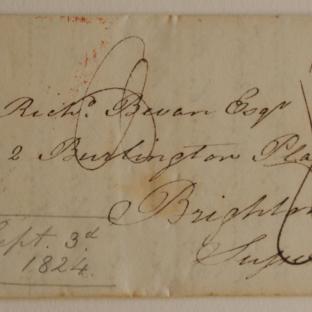 Richd. Bevan Esqr
2 Burlington Pla
Brighton
Suss
Sept. 3d
1824.